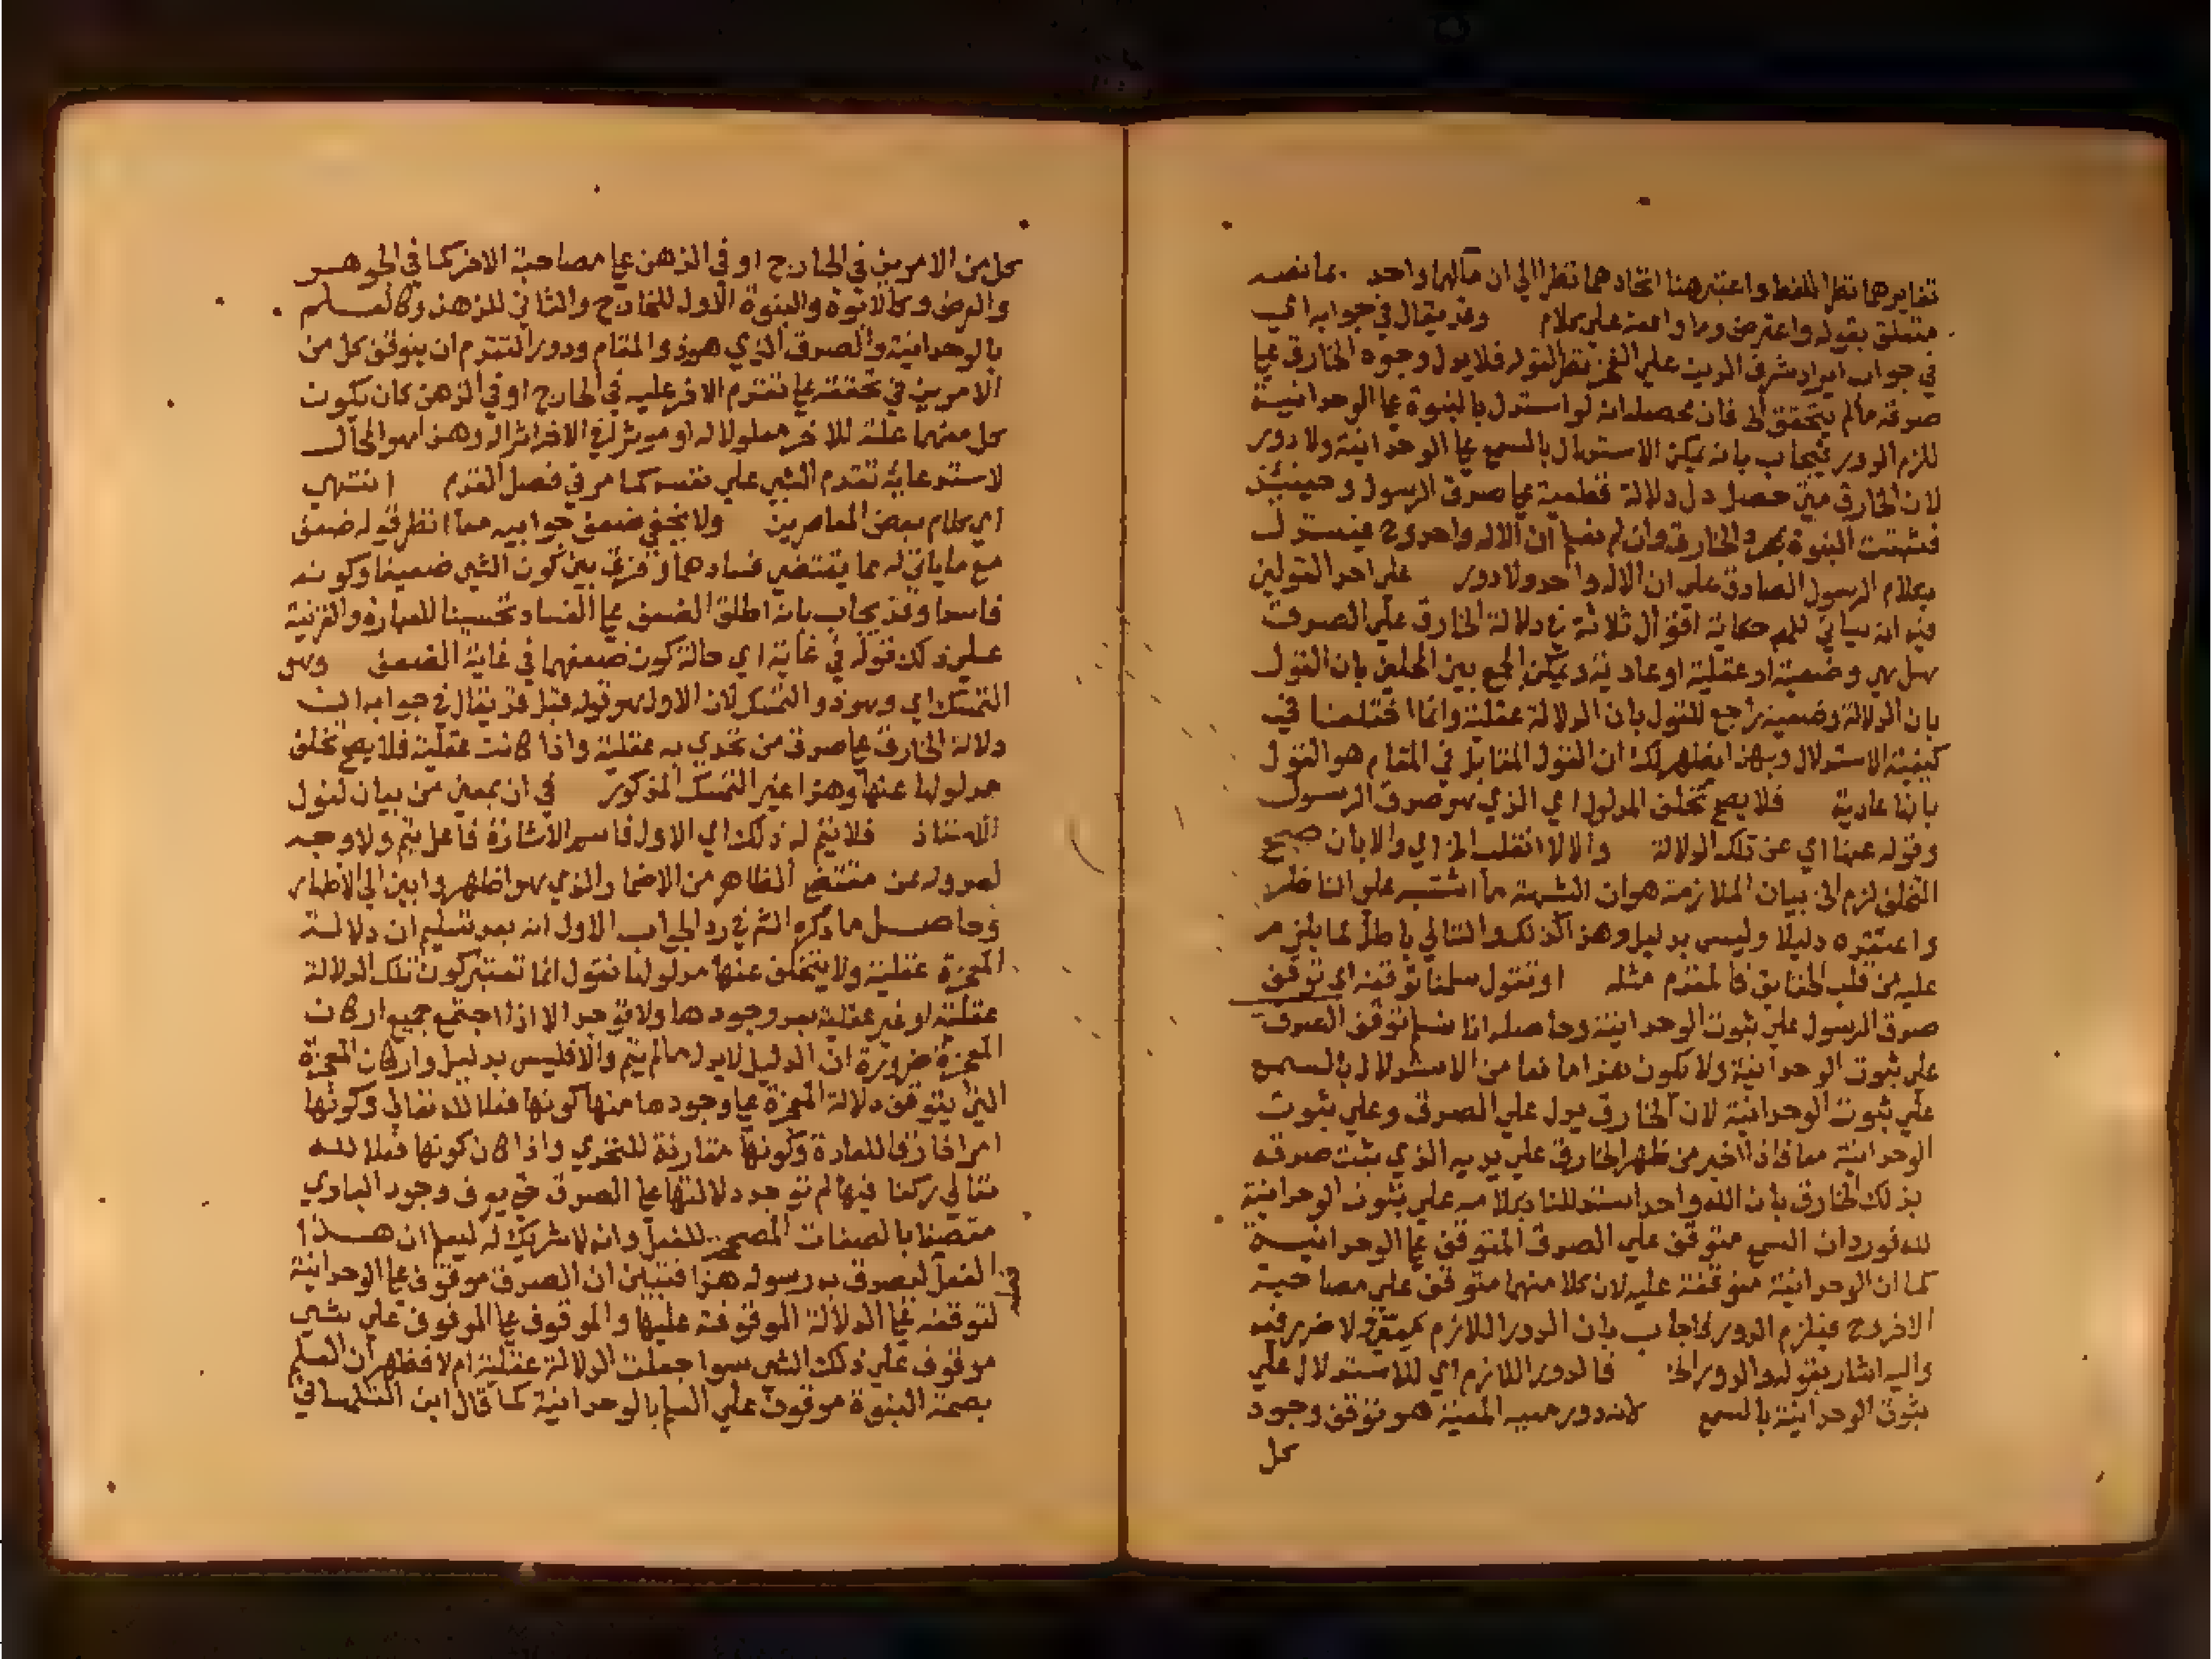 تغايرهما نظرا للفظ واعتبر هنا اتحادهما نظرا الي ان مآلهما واحد . بما نصه
متعلق بقوله واعترض وما واقعة علي كلام وقد يقال في جوابه اي
في جواب ايراد شرف الدين علي الفخر نظرا لقوله فلا يدل وجود الخارق عيا
صدقه مالم يتحقق الخ فان محصله انه لو استدل بالنبوة عيا الوحدانية
للزم الدور فيجاب بانه يمكن الاستدلال بالسمع عيا الوحدانية ولا دور
لان الخارق متي حصل دل دلالة قطعية عيا صدق الرسول وحينئذ
فثبتت النبوة بمجرد الخارق وان لم نعلم ان الاله واحد وح فيستدل
بكلام الرسول الصادق علي ان الاله واحد ولا دور علي احد القولين
فيه انه سياتي للم حكاية اقوال ثلاثة في دلالة الخارق علي الصدق
هل هي وضعية او عقلية او عادية ويمكن الجمع بين المحلين بان القول
بان الدلالة وضعية راجع للقول بان الدلالة عقلية وانما اختلفنا في
كيفية الاستدلال وبهذا يظهر لك ان القول المقابل في المقام هو القول
بانها عادية فلا يصح تخلف المدلول اي الذي هو صدق الرسول
وقوله عنها اي عن تلك الدلالة والا لانقلب الخ اي والا بان صح
التخلف لزم الخ بيان الملازمة هو ان الشبهة ما اشتبه علي الناظر
واعتقده دليلا وليس بدليل وهذا كذلك والتالي باطل لما يلزم
عليه من قلب الحقايق فالمقدم مثله او نقول سلمنا توقفه اي توقف
صدق الرسول علي ثبوت الوحدانية وحاصله انا نسلم توقف الصدق
علي ثبوت الوحدانية ولا يكون هذا مانعا من الاستدلال بالسمع
علي ثبوت الوحدانية لان الخارق يدل علي الصدق وعلي ثبوت
الوحدانية معا فاذا اخبر من ظهر الخارق علي يديه الذي ثبت صدقه
بذلك الخارق بان الله واحد استدللنا بكلامه علي ثبوت الوحدانية
لله فورد ان السمع متوقف علي الصدق المتوقف عيا الوحدانية
كما ان الوحدانية متوقفة عليه لان كلا منهما متوقف علي مصاحبة
الاخر وح فيلزم الدور فاجاب بان الدور اللازم معي لا ضرر فيه
واليه اشار بقوله والدور الخ فالدور اللازم اي للاستدلال علي
ثبوت الوحدانية بالسمع لانه دور معية المعية هو توقف وجود
كل
كل من الامرين في الخارج او في الذهن عيا مصاحبة الاخر كما في الجوهر
والعرض وكالابوة والبنوة الاول للخارج والثاني للذهن وكالعلم
بالوحدانية والصدق الذي هو ذو المقام ودور التقدم ان يتوقف كل من
الامرين في تحققه عيا تقدم الاخر عليه في الخارج او في الذهن كان يكون
كل منهما علة للاخر معلولا له او موثرا في الاخر اثرا له وهذا هو المحال
لاستدعائه تقدم الشي علي نفسه كما مر في فصل القدم انتهي
اي كلام بعض المعاصرين ولا يخفي ضعف جوابيه معا انظر قوله ضعف
مع ما ياتي له مما يقتضي فسادهما وفرق بين كون الشي ضعيفا وكونه
فاسدا وقد يجاب بانه اطلق الضعف عيا الفساد تحسينا للعبارة والقرينة
علي ذلك قوله في غاية اي حالة كون ضعفهما في غاية الضعف وهو
التمسك اي وهو ذو التمسك لان الاول هو قوله قبل قد يقال في جوابه ان
دلالة الخارق عيا صدق من تحدي به عقلية واذا كانت عقلية فلا يصح تخلف
مدلولها عنها وهذا غير التمسك المذكور في ان بعض من بيان لقول
الاستاذ فلا يتم له ذلك اي الاول فاسم الاشارة فاعل يتم ولا وجه
لعدوله عن مقتضي الظاهر من الاضمار الذي هو اظهر وابين الي الاظهار
وحاصل ما ذكره الشم في رد الجواب الاول انه بعد تسليم ان دلالة
المعجزة عقلية ولا يتخلف عنها مدلولها نقول انما تعتبر كون تلك الدلالة
عقلية او غير عقلية بعد وجودها ولا توجد الا اذا اجتمع جميع اركان
المعجزة ضرورة ان الدليل لا يدل مالم يتم والا فليس بدليل واركان المعجزة
التي يتوقف دلالة المعجزة عيا وجودها منها كونها فعلا لله تعالي وكونها
امرا خارقا للعادة وكونها مقارنة للتحدي واذا كان كونها فعلا لله
تعالي ركنا فيها لم توجد دلالتها عيا الصدق حتي يعرف وجود الباري
متصفا بالصفات المصححة للفعل وانه لا شريك له ليعلم ان هذا
الفعل لتصدق به رسوله هذا فتبين ان الصدق موقوف عيا الوحدانية
لتوقفه عيا الدلالة الموقوفة عليها والموقوف عيا الموقوف علي شي
موقوف علي ذلك الشي سوا جعلت الدلالة عقلية ام لا فظهر ان العلم
بصحة النبوة موقوف علي العلم بالوحدانية كما قال ابن التلمساني